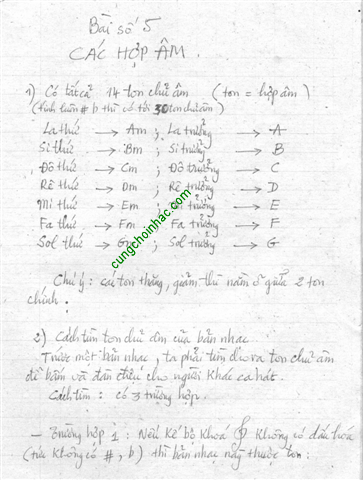 Bài số 5
CÁC HỢP ÂM.
1) Có tất cả 14 ton chủ âm (ton = hợp âm)
(tính luôn # b thì có tới 30 ton chủ âm)
La thứ → Am ; La trưởng → A
Si thứ → Bm ; Si trưởng → B
Đô thứ → Cm ; Đô trưởng → C
Rê thứ → Dm ; Rê trưởng → D
Mi thứ → Em ; trưởng → E
Fa thứ → Fm ; Fa trưởng → F
Sol thứ → Gm ; Sol trưởng → G
cungchoinhac.com
Chú ý : cái ton thăng, giảm thì nằm ở giữa 2 ton
chính.
2) Cách tìm ton chủ âm của bản nhac
Trước một bản nhac, ta phải tìm cho ra ton chủ âm
để bấm và đàn cho người khác ca hát.
Cách tìm : có 3 trường hợp.
- Trường hợp 1 : Nếu kế bộ khoá 𝄞 Không có dấu hoá
(tức Không có #, b) thì bản nhac này thuộc ton :